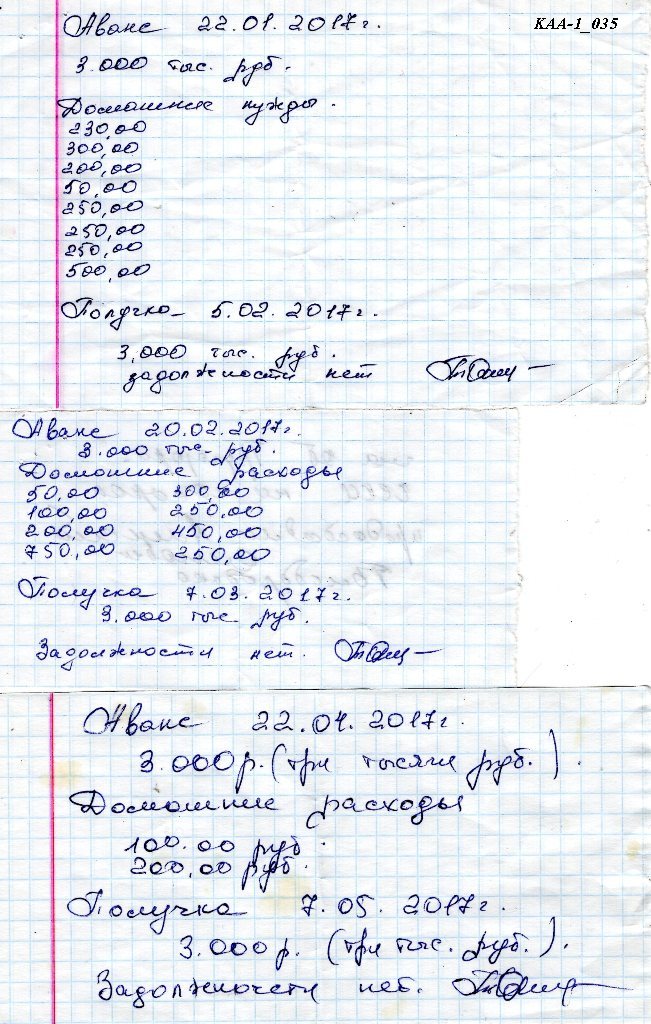 Аванс 22.01.2017г.
КАА-1_035
3.000 тыс. руб.
Домашние нужды.
230,00
300,00
200,00
50,00
250,00
250,00
250,00
500,00
Получка 5.02.2017г.
3,000 тыс. руб.
задолжности нет
Аванс 20.02.2017г.
3.000 тыс. руб.
Домашние расходы
50,00 300,00
100,00 250,00
200,00 450,00
750,00 250,00
Получка 7.03.2017г.
3.000 тыс руб.
Задолжности нет.
Аванс 22.04.2017г.
3.000р. (три тысячи руб.).
Домашние расходы
100.00 руб.
200,00 руб.
Получка 7.05.2017г.
3.000р. (три тыс. руб.).
Задолжности нет.